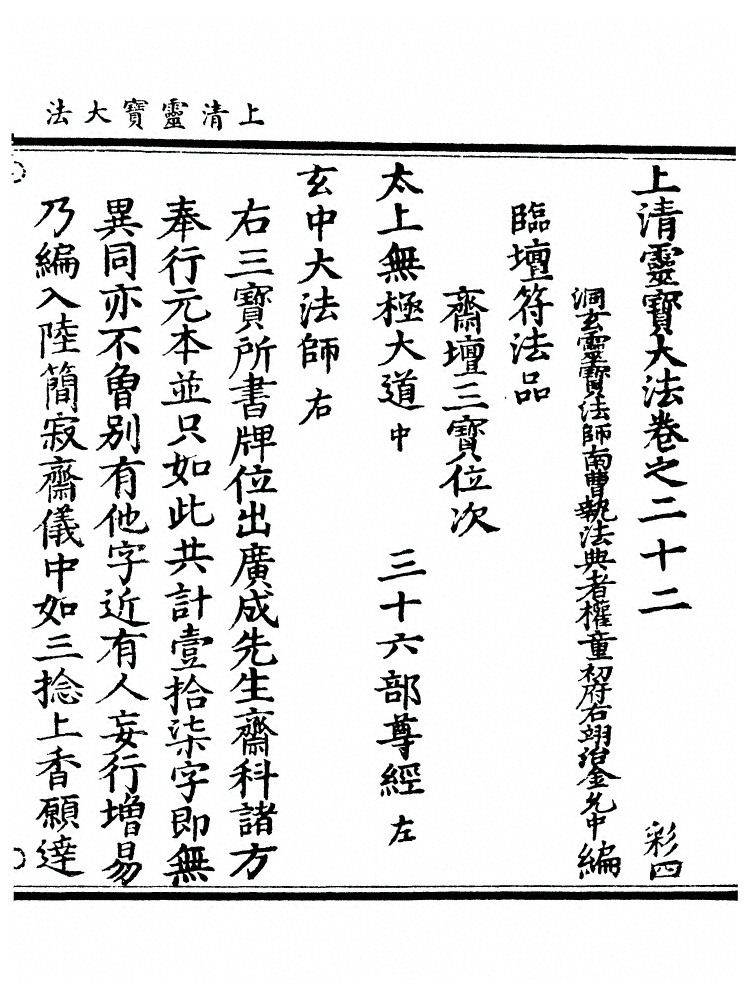 上清靈寶大法
上清靈寶大法卷之二十二　彩四
洞玄靈寶法師南曹執法典者權童初府右翊治金允中編
臨壇符法品
齋壇三寶位次
太上無極大道中　三十六部尊經左
玄中大法師右
右三寶所書牌位出廣成先生齋科諸方
奉行元本並只如此共計壹拾柒字即無
異同亦不曾別有他字近有人妄行增易
乃編入陸簡寂齋儀中如三捻上香願達